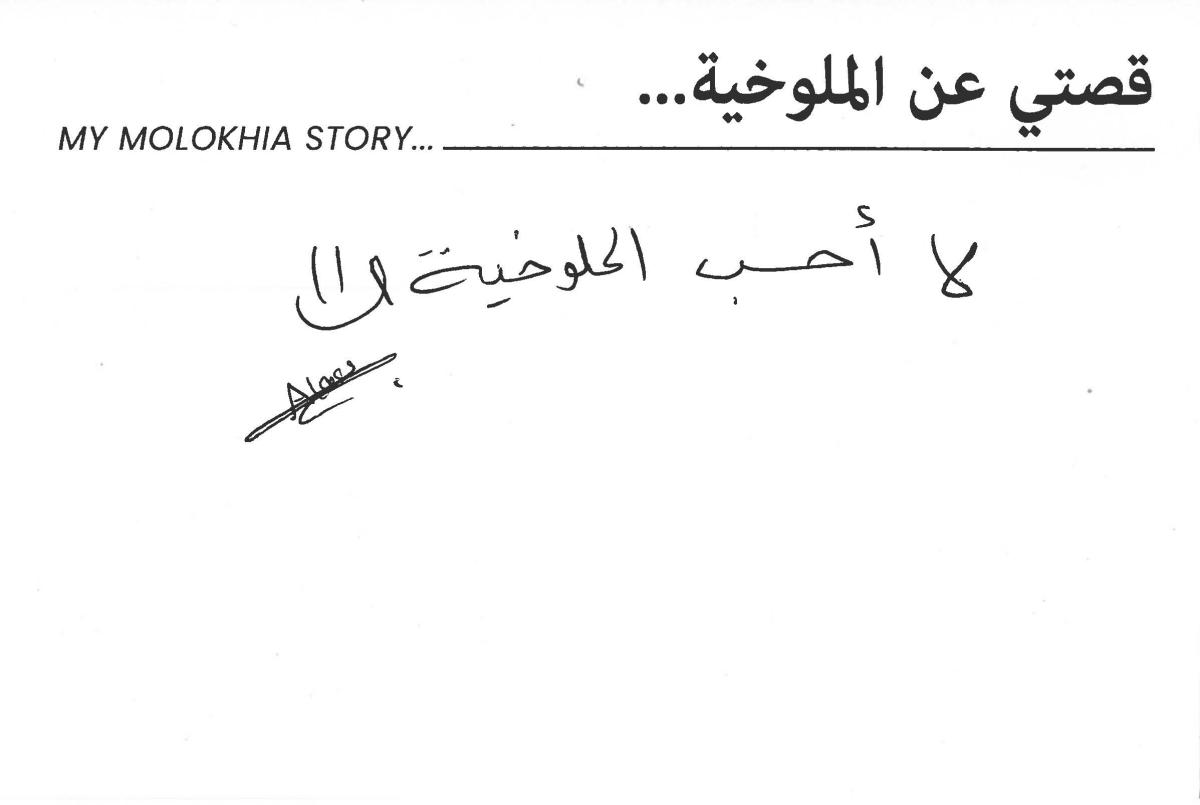 قصتي عن الملوخية...
MY MOLOKHIA STORY...
لا أحب الملوخية